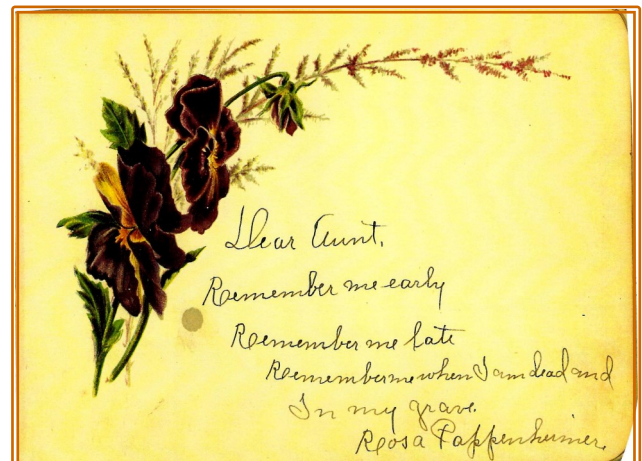 Dear Aunt,
Remember me early
Remember me late
Remember me when I am dead and
In my grave.
Rosa Pappenheimer